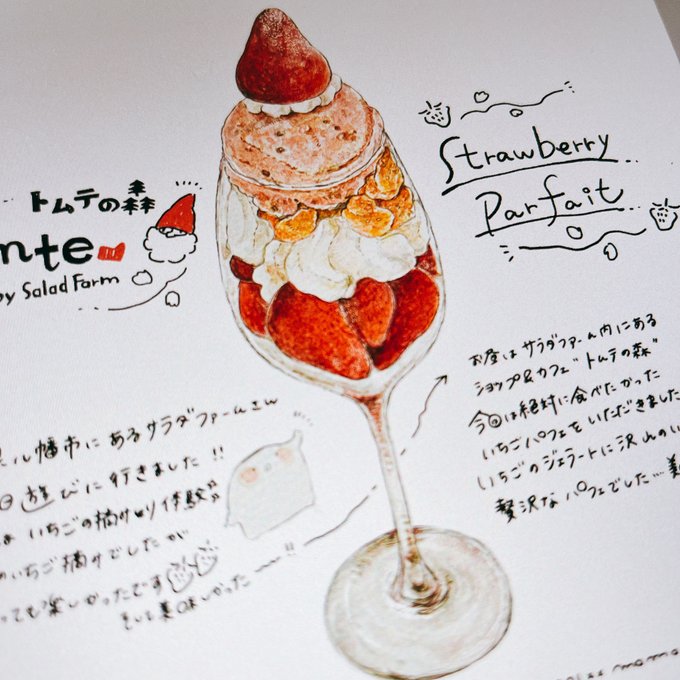 トムテの森
nte
by Salad Farm
Strawberry
Parfait
お昼は サラダファーム内にある
ショップ&カフェ"トムテの森"
今回は絶対に食べたかった
いちごパフェをいただきました
いちごのジェラートに沢山のい
贅沢なパフェでした…美
幡市にあるサラダファームさん
遊びに行きました!!
いちごの摘みとり体験
いちご摘みでしたが
っても楽しかったです
そして美味しかったー!!